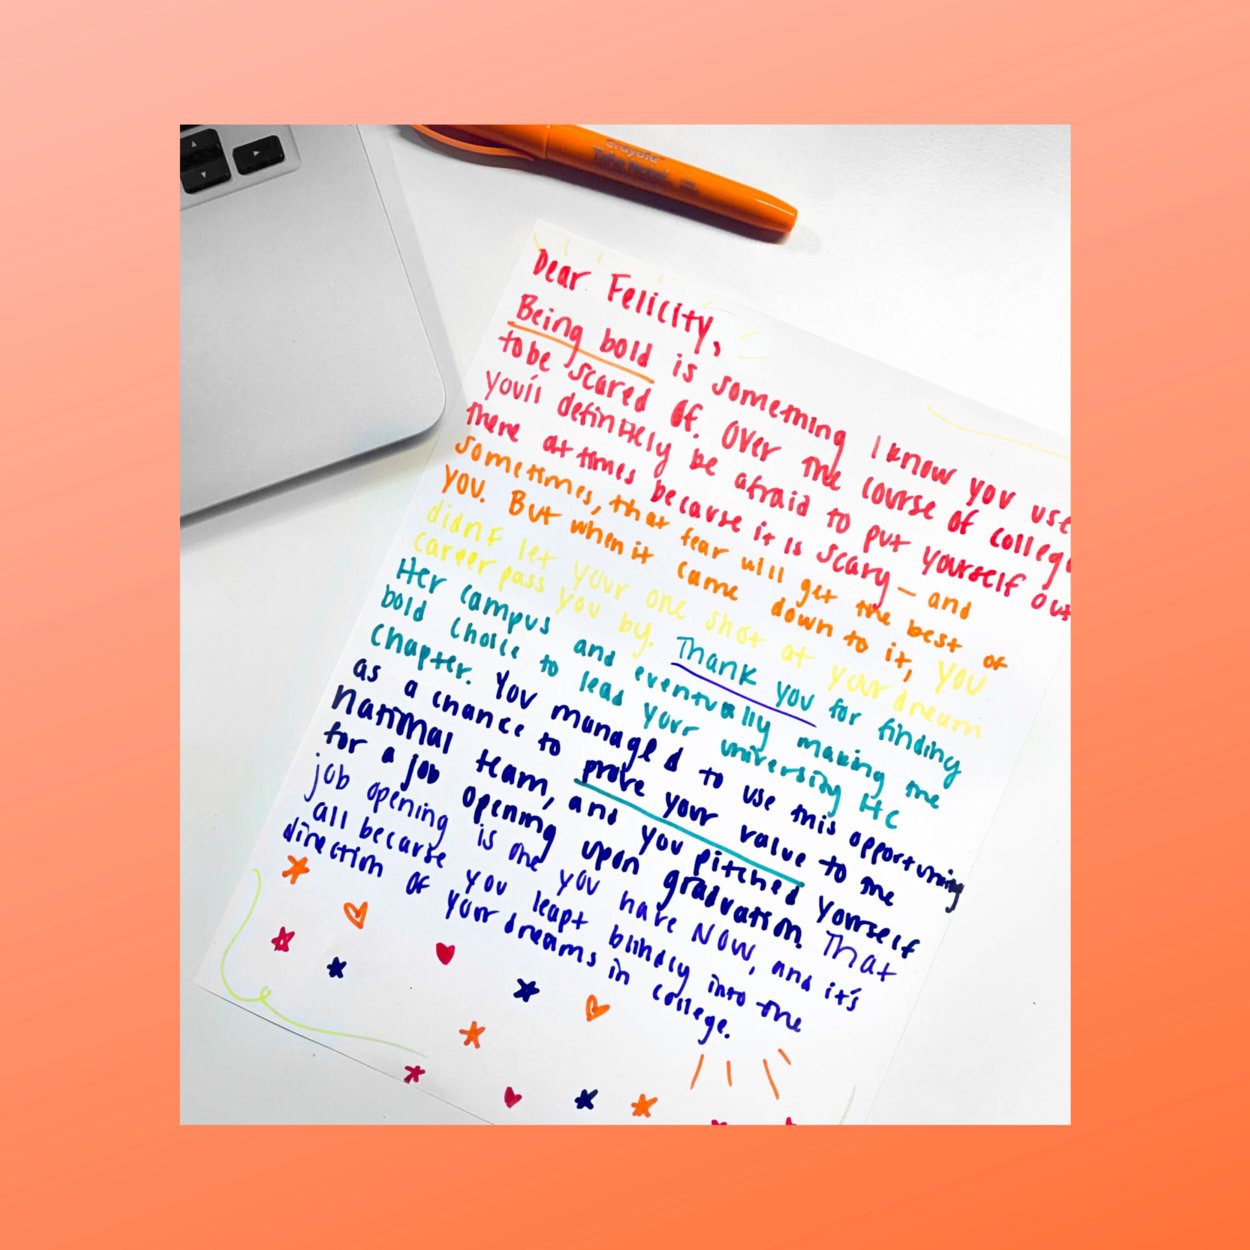 Crayola
Take Note!
Dear Felicity,
Being bold is something I know you use
to be scared of. Over the course of colleg
you'll definitely be afraid to put yourself out
there at times because it is scary — and
sometimes, that fear will get the best of
you. But when it came down to it, you
didn't let your one shot at your dream
career pass you by. Thank you for finding
Her Campus and eventually making the
bold choice to lead your university HC
chapter. You managed to use this opportunity
as a chance to prove your value to the
national team, and you pitched yourself
for a job opening upon graduation. That
job opening is one you have NOW, and it's
all because you leapt blindly into the
direction of your dreams in college.